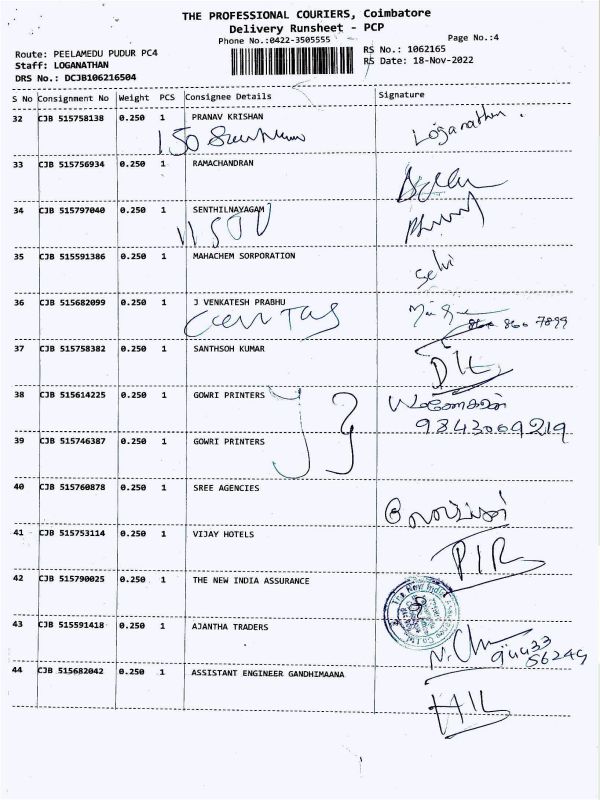 THE PROFESSIONAL COURIERS, Coimbatore
Delivery Runsheet - PCP
Phone No.:0422-3505555
Page No.:4
Route: PEELAMEDU PUDUR PC4
RS No.: 1062165
Staff: LOGANATHAN
RS Date: 18-Nov-2022
DRS No.: DCJB106216504
S No Consignment No Weight PCS Consignee Details Signature
32 CJB 515758138 0.250 1 PRANAV KRISHAN Loganathan.
150
33 CJB 515756934 0.250 1 RAMACHANDRAN
34 CJB 515797040 0.250 1 SENTHILNAYAGAM
35 CJB 515591386 0.250 1 MAHACHEM SORPORATION
Selvi
36 CJB 515682099 0.250 1 J VENKATESH PRABHU
866 7899
37 CJB 515758382 0.250 1 SANTHSOH KUMAR
38 CJB 515614225 0.250 1 GOWRI PRINTERS
9843009219
39 CJB 515746387 0.250 1 GOWRI PRINTERS
40 CJB 515760878 0.250 1 SREE AGENCIES
41 CJB 515753114 0.250 1 VIJAY HOTELS
42 CJB 515790025 0.250 1 THE NEW INDIA ASSURANCE
The New India
43 CJB 515591418 0.250 1 AJANTHA TRADERS
56249
44 CJB 515682042 0.250 1 ASSISTANT ENGINEER GANDHIMAANA